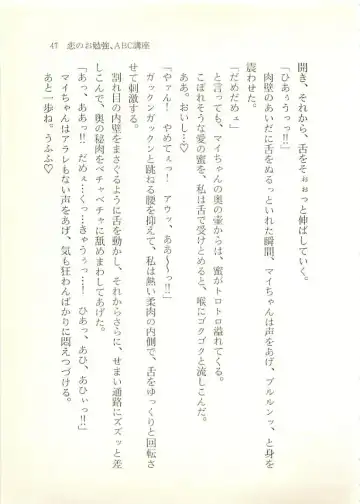 47 恋のお勉強、ABC講座
開き、それから、舌をそぉぉっと伸ばしていく。
「ひあぅうっっ!!」
肉壁のあいだに舌をぬるっといれた瞬間、マイちゃんは声をあげ、ブルルンッ、と身を
震わせた。
「だめだめェ」
とも、いいながらも、マイちゃんの奥の壺からは、蜜がトロトロ溢れてくる。
こぼれそうな愛の蜜を、私は舌で受けとめると、喉にゴクゴクと流しこんだ。
ああ。おいし……♡
「やァん! やめてぇっ! アウッ、ああ〜〜っ!!」
ガックンガックンと跳ねる腰を抑えて、私は熱い柔肉の内側で、舌をゆっくりと回転さ
せて刺激する。
割れ目の内壁をまさぐるように舌を動かし、それからさらに、せまい通路にズズッと差
しこんで、奥の秘肉をペチャペチャに舐めまわしてあげた。
「あっ、ああっ!! だめぇ…くっ…きゃうぅっ…! ひあっ、あひ、あひぃっ!!」
マイちゃんはアラレもない声をあげ、気も狂わんばかりに悶えつづける。
あと一歩ね。うふふ♡